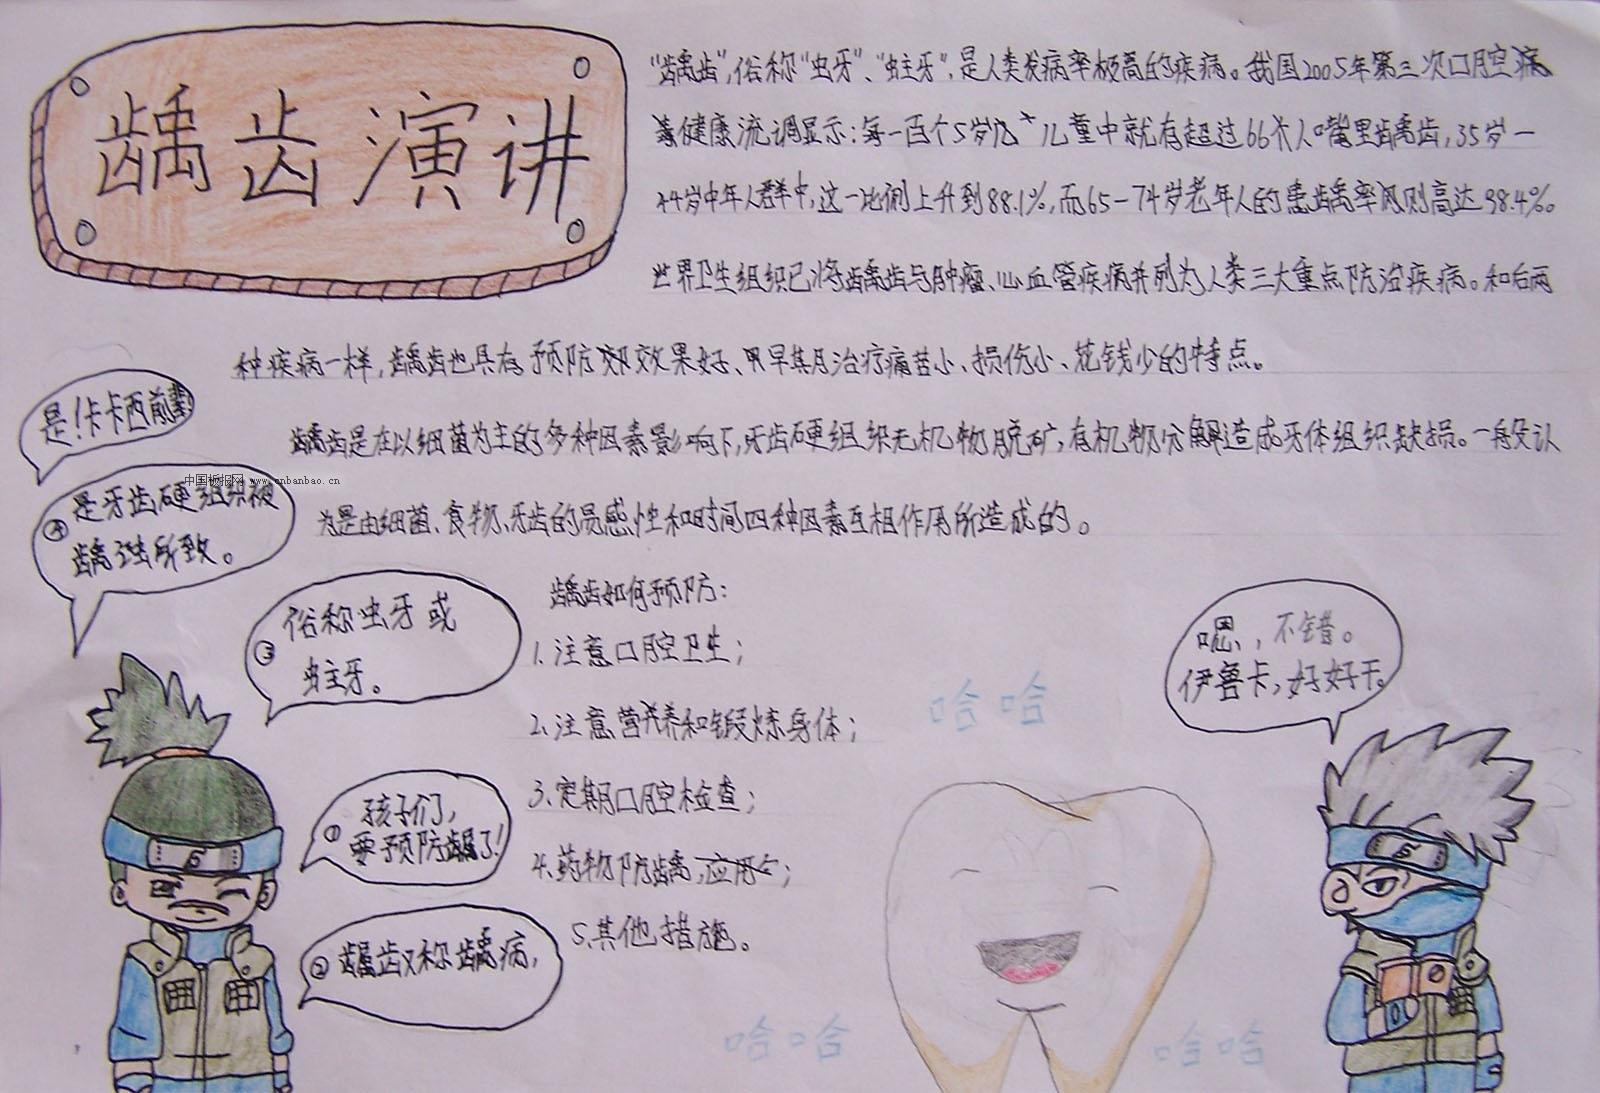 龋齿演讲
“龋齿”,俗称“虫牙”、“蛀牙”,是人类发病率极高的疾病。我国2005年第三次口腔病
健康流调显示:每一百个5岁 儿童中就有超过66 人嘴里龋齿,35岁一
44岁中年人群中,这一比例上升到88.1%,而65-74岁老年人的患龋率 则高达98.4%。
世界卫生组织已将龋齿与肿瘤、心血管疾病并列为人类三大重点防治疾病。和后两
种疾病一样,龋齿也具有预防 效果好、早期治疗痛苦小、损伤小、花钱少的特点。
龋齿是在以细菌为主的多种因素影响下,牙齿硬组织无机物脱矿,有机物分解造成牙体组织缺损。一般认
为是由细菌、食物、牙齿的易感性和时间四种因素互相作用所造成的。
是!卡卡西前辈!
中国板报网 www.cnbanbao.cn
④是牙齿硬组织被
龋蚀所致。
③俗称虫牙或
蛀牙。
①孩子们,
要预防龋了!
②龋齿又称龋病,
龋齿如何预防:
1.注意口腔卫生;
2.注意营养和锻炼身体;
3.定期口腔检查;
4.药物防龋,应用 ;
5.其他措施。
嗯,不错。
伊鲁卡,好好干。
哈哈
哈哈
哈哈